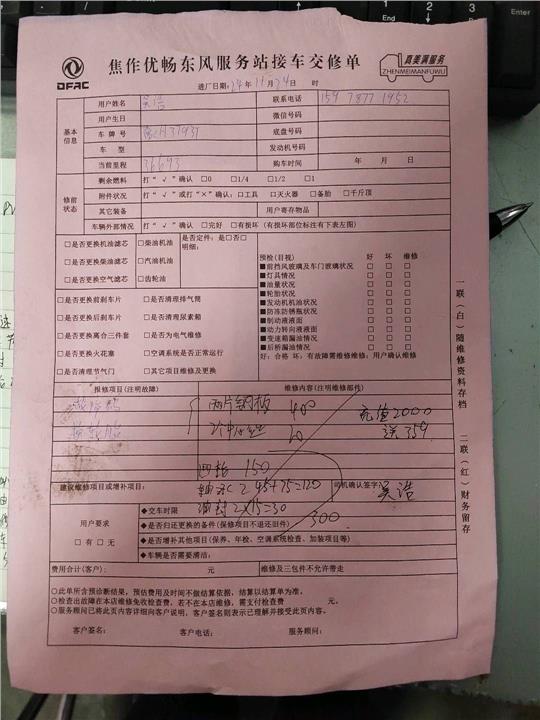 DFAC
焦作优畅东风服务站接车交修单
真美满服务
ZHENMEIMANFUWU
进厂日期:24年11月24日 时
基本信息
用户姓名 吴浩 联系电话 159 7877 1952
用户生日 微信号码
车牌号 底盘号码
车 型 发动机号码
当前里程 36693 购车时间 年 月 日
修前状态
剩余燃料 打“√”确认 □0 □1/4 □1/2 □1
附件状况 打“√”或打“×”确认:□工具 □灭火器 □备胎 □千斤顶
其它装备 用户寄存物品
车辆外部情况 打“√”确认 □完好 □有损坏(有损坏部位标注有下表左图)
□是否更换机油滤芯 □柴油机油 是否定件:是□否□
□是否更换柴油滤芯 □汽油机油 明细:
□是否更换空气滤芯 □齿轮油
□是否更换前刹车片 □是否清理排气筒
□是否更换后刹车片 □是否清理尿素箱
□是否更换离合三件套 □是否为电气维修
□是否更换火花塞 □空调系统是否正常运行
□是否清理节气门 □其它项目维修及更换
预检(目视) 好 坏 维修
■前挡风玻璃及车门玻璃状况 □ □ □
■灯具情况 □ □ □
■油量状况 □ □ □
■轮胎状况 □ □ □
■发动机机油状况 □ □ □
■防冻防锈瓶状况 □ □ □
■制动液液面 □ □ □
■动力转向液液面 □ □ □
■变速箱漏油情况 □ □ □
■后桥漏油情况 □ □ □
好:合格 坏:有故障需维修维修:用户确认维修
报修项目(注明故障) 维修内容(注明维修部件)
两片钢板 400 充值2000
20
四轮 150
建议维修项目或增补项目:
轴承 2 45+75=120 司机确认签字: 吴浩
油封 2×15=30
300
用户要求
□有 □无
◆交车时限
◆是否归还更换的备件(保修项目不退还旧件)
◆是否增补其他项目(保养、年检、空调系统检查、加装项目等)
◆车辆是否需要清洁:
费用合计(客户): 元 维修及三包件不允许带走
○此单所含预诊断结果,预估费用及时间不做结算依据,结算以结算单为准。
○检查出故障在本店维修免收检查费,若不在本店维修,需支付检查费 元。
○服务顾问已将此页内容详细向客户说明,客户签名则表示已理解并接受此页内容。
客户签名: 客户电话: 服务顾问:
一联(白)随维修资料存档
二联(红)财务留存
Enter